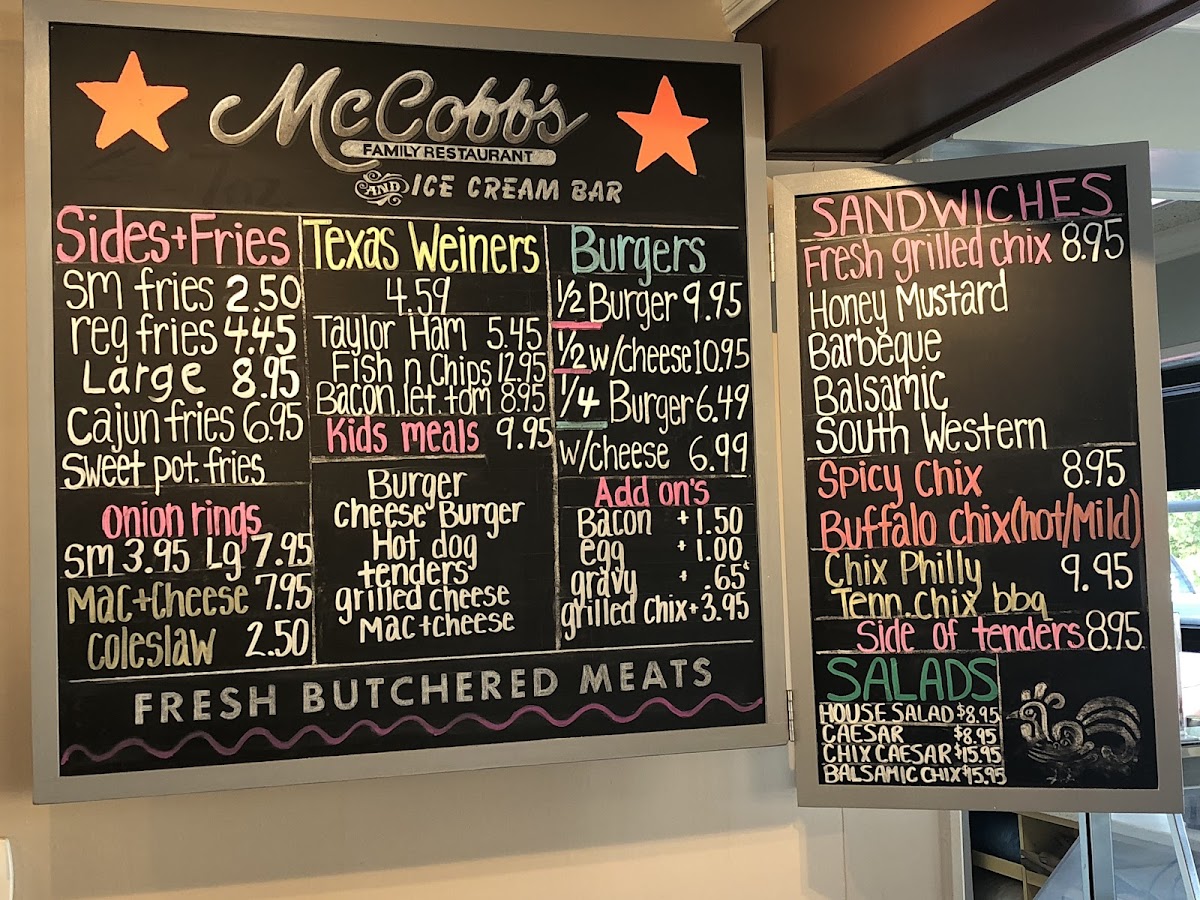 McCobb's
FAMILY RESTAURANT
AND ICE CREAM BAR
Sides+Fries
sm fries 2.50
reg fries 4.45
Large 8.95
Cajun fries 6.95
Sweet pot. fries
Onion rings
sm 3.95 Lg 7.95
Mac+Cheese 7.95
Coleslaw 2.50
Texas Weiners
4.59
Taylor Ham 5.45
Fish n Chips 12.95
Bacon, let. tom 8.95
Kids meals 9.95
Burger
Cheese Burger
Hot dog
tenders
grilled cheese
Mac+cheese
Burgers
1/2 Burger 9.95
1/2 w/cheese 10.95
1/4 Burger 6.49
w/cheese 6.99
Add on's
Bacon +1.50
egg +1.00
gravy + .65¢
grilled chix + 3.95
FRESH BUTCHERED MEATS
SANDWICHES
Fresh grilled chix 8.95
Honey Mustard
Barbeque
Balsamic
South Western
Spicy Chix 8.95
Buffalo chix (hot/Mild)
Chix Philly 9.95
Tenn. chix bbq
Side of tenders 8.95
SALADS
HOUSE SALAD $8.95
CAESAR $8.95
CHIX CAESAR $15.95
BALSAMIC CHIX $15.95